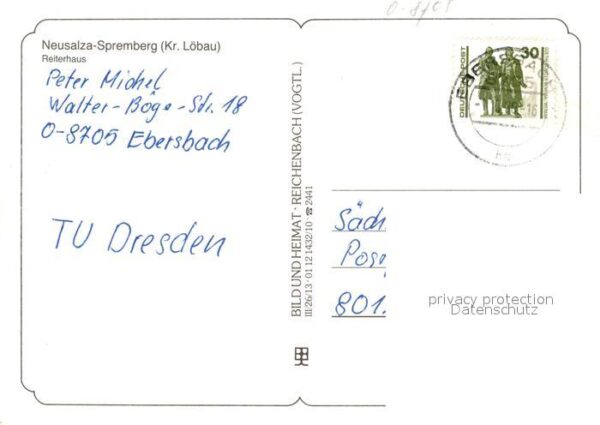 0-8701
Neusalza-Spremberg (Kr. Löbau)
Reiterhaus
Peter Michel
Walter-Böge-Str. 18
O-8705 Ebersbach
TU Dresden
BILD UND HEIMAT · REICHENBACH (VOGTL.)
III/26/13 · 01 12 1432/10 · ☎ 2441
30
DEUTSCHE POST
Säch
Pos
801.
privacy protection
Datenschutz